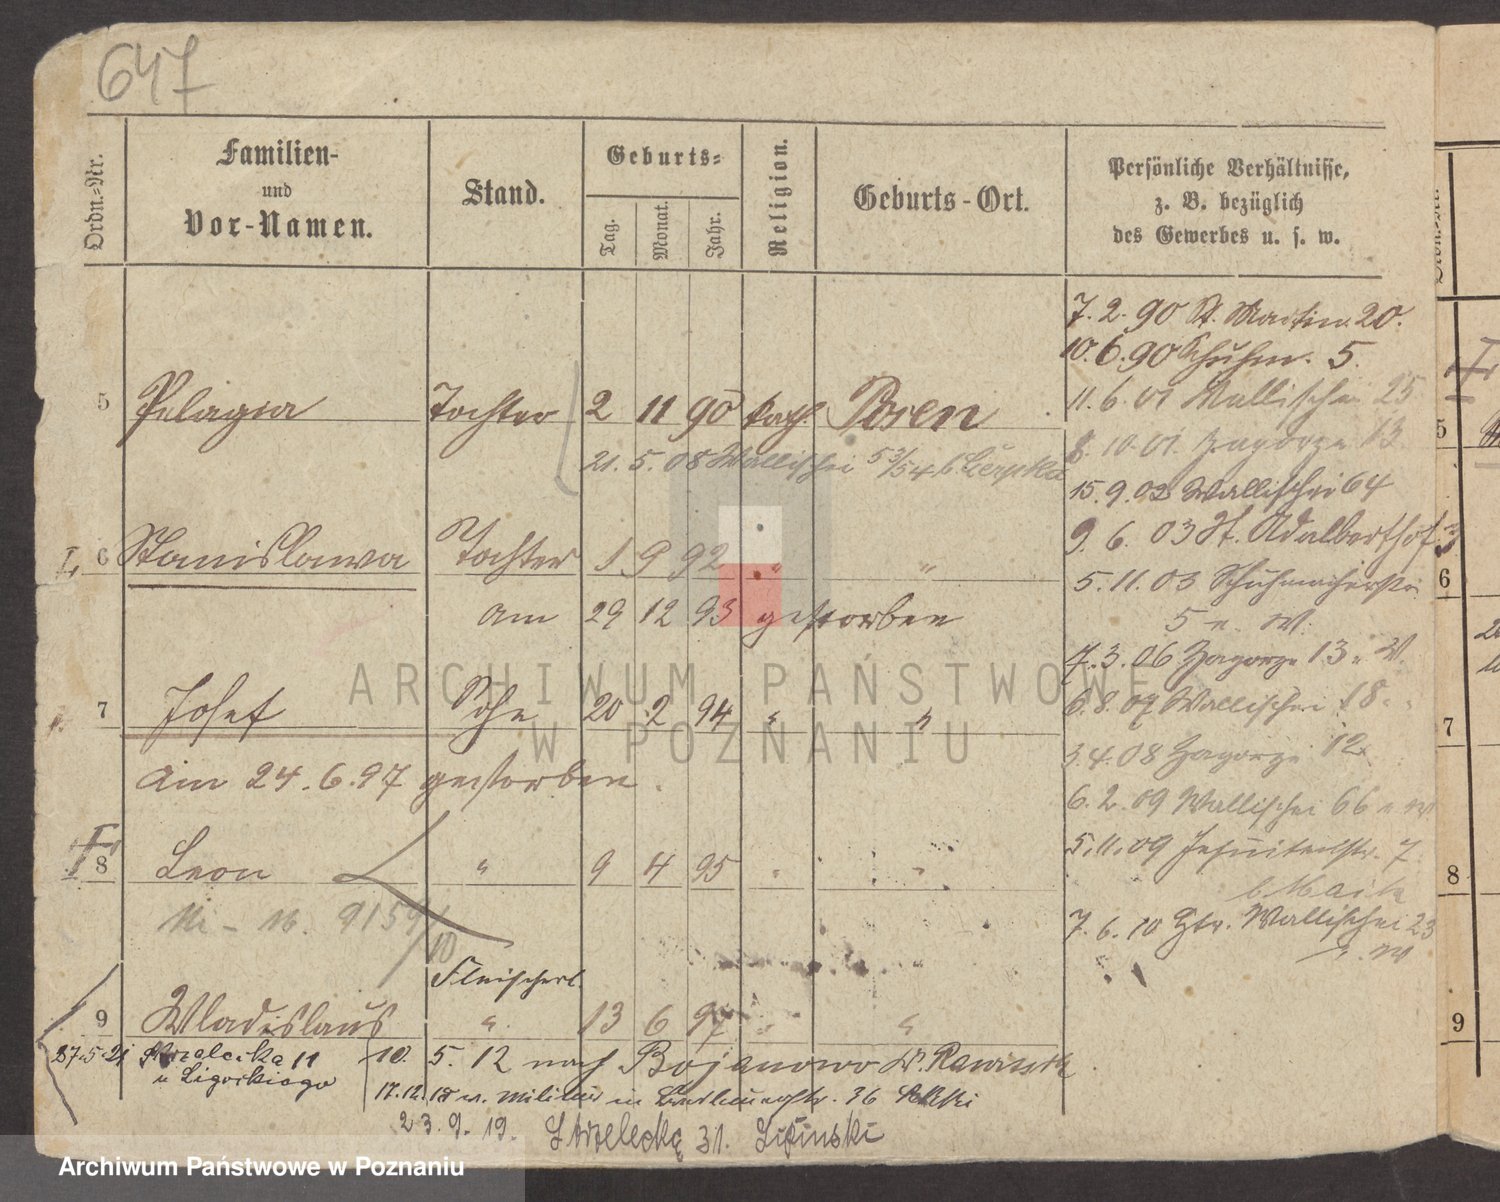 647
Ordn.-Nr.
Familien- und Vor-Namen.
Stand.
Geburts-
Tag.
Monat.
Jahr.
Religion.
Geburts-Ort.
Persönliche Verhältnisse, z. B. bezüglich des Gewerbes u. s. w.
7. 2. 90 St. Martin 20.
10. 6. 90 Schuhm. 5.
5 Pelagia Tochter 2 11 90 kath. Posen
11. 6. 01 Wallischei 25
21. 5. 08 Wallischei 53/54 b.
8. 10. 01. Zagorze 13
15. 9. 02 Wallischei 64
9. 6. 03 St. Adalberthof 3
6 Stanislawa Tochter 1 9 92 " "
5. 11. 03 Schuhmacherstr.
am 29 12 93 gestorben
5 n. W.
7. 3. 06 Zagorze 13 n. W.
7 Josef Sohn 20 2 94 " "
6. 8. 07 Wallischei 18
am 24. 6. 97 gestorben.
3. 4. 08 Zagorze 12
6. 2. 09 Wallischei 66 n W
8 Leon " 9 4 95 " "
5. 11. 09 Jesuitenstr. 7
9159/10
7. 6. 10 Ztr. Wallischei 23
n. W
Fleischerl.
9 Wladislaus " 13 6 97 " "
27.5.21 Strzelecka 11
u Ligockiego
10. 5. 12 nach Bojanowo Kr. Rawitsch
17. 12. 18 v. Militär in 36
23. 9. 19. Strzelecka 31. Lipinski
5
6
7
8
9
ARCHIWUM PAŃSTWOWE
W POZNANIU
Archiwum Państwowe w Poznaniu